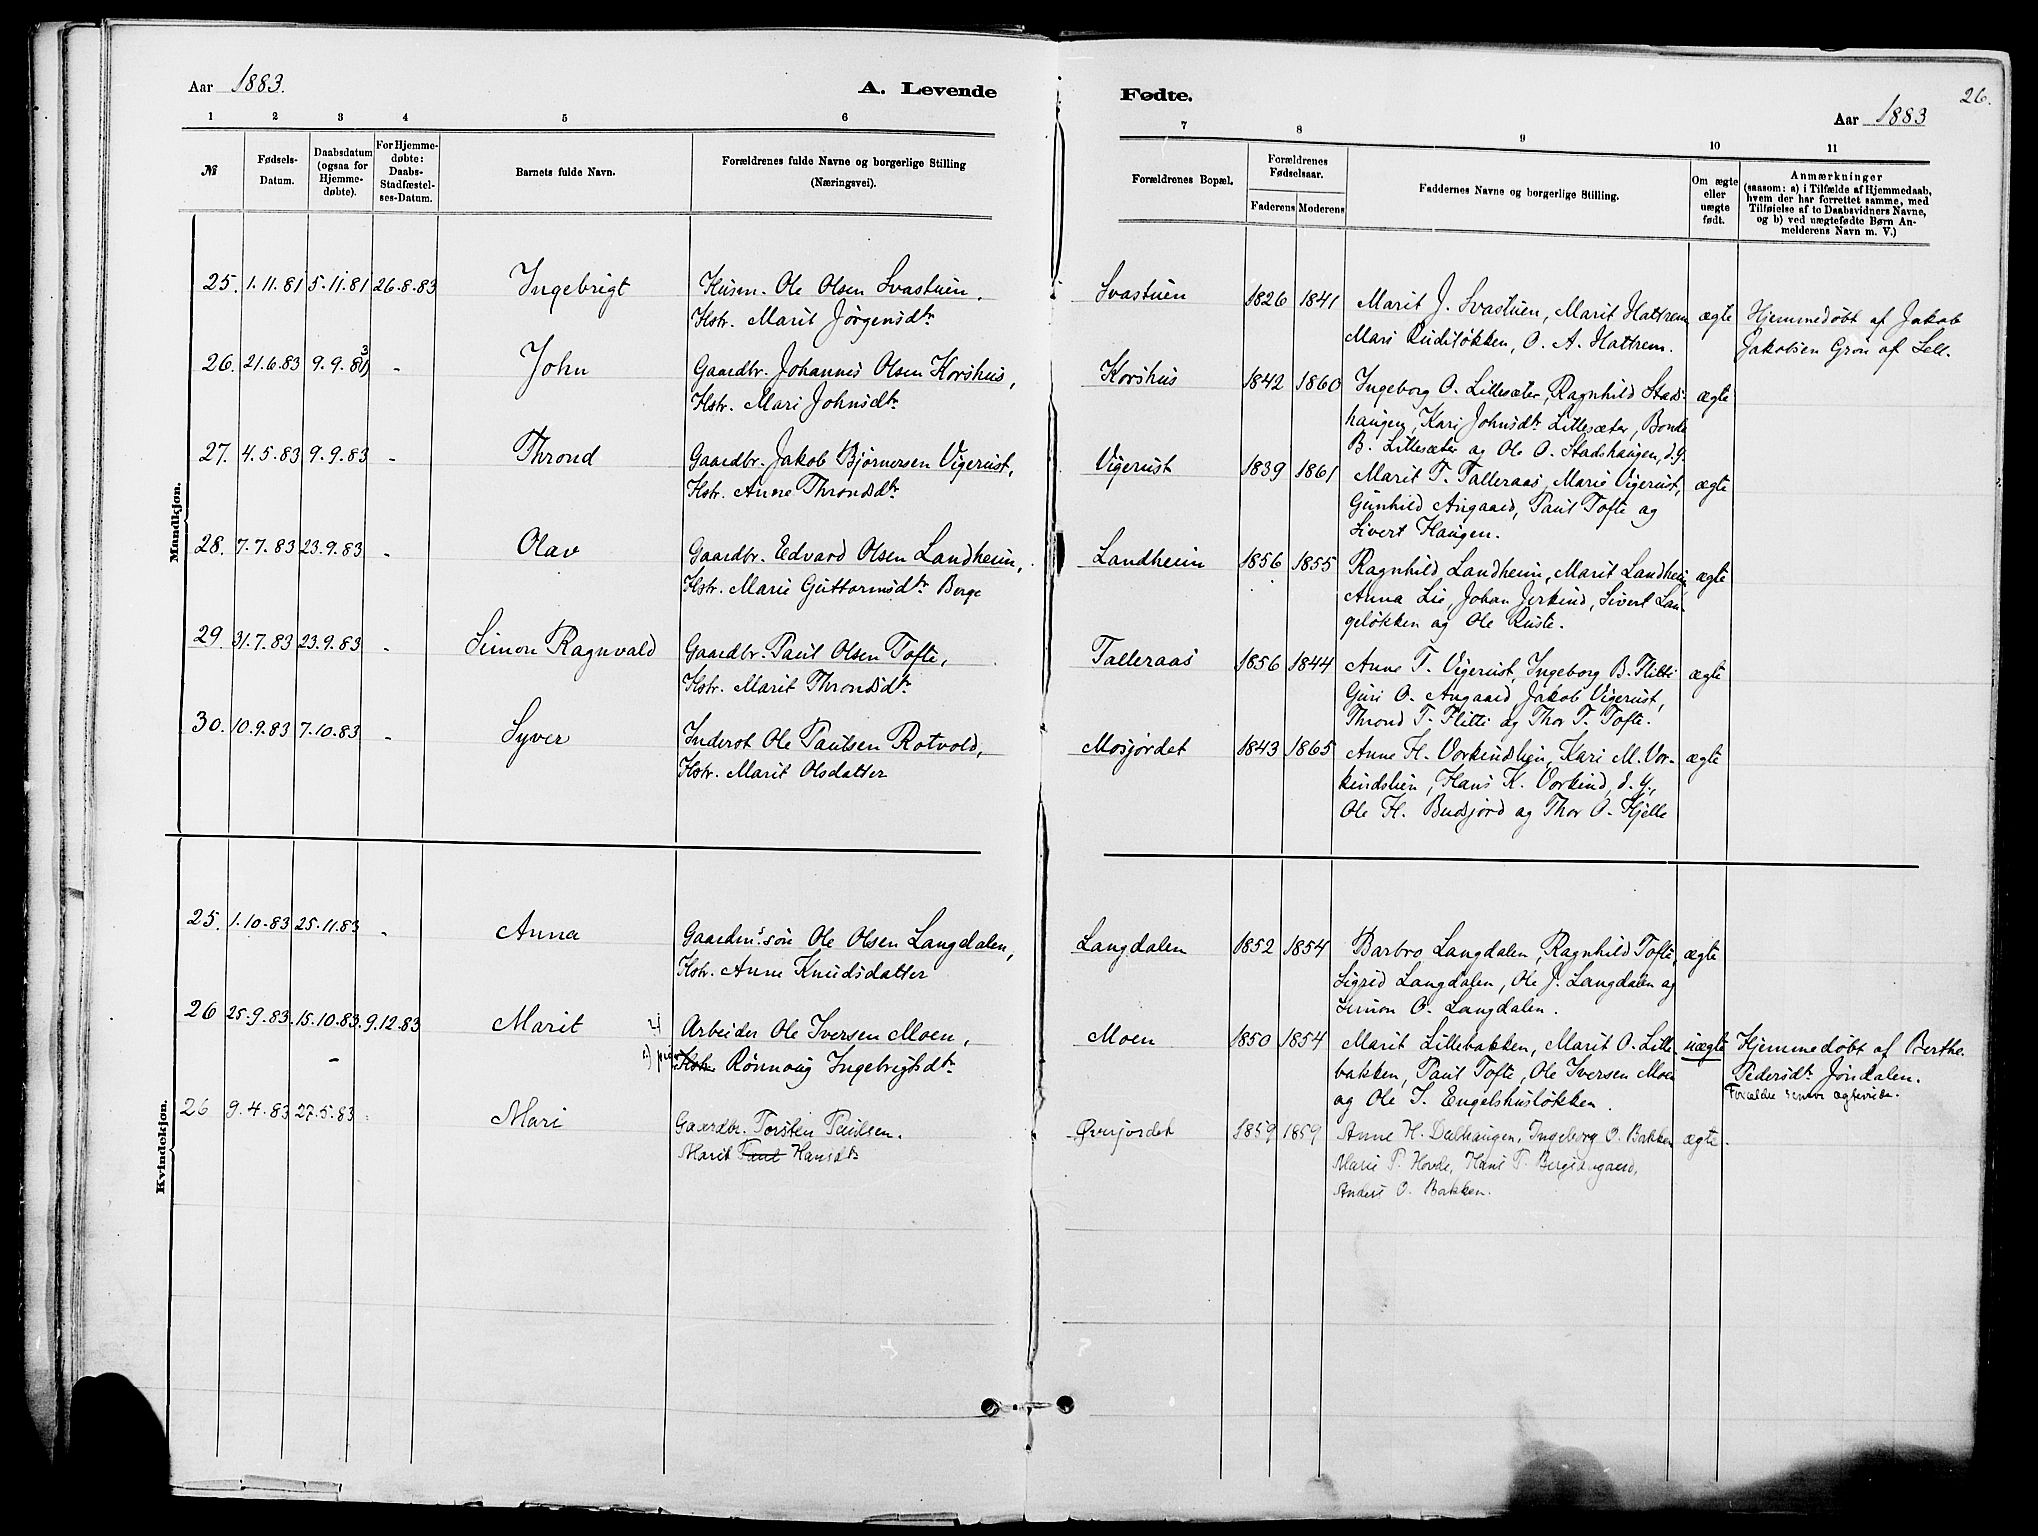 Aar 1883.
A. Levende
1 2 3 4 5 6
№
Fødsels-Datum.
Daabsdatum (ogsaa for Hjemmedøbte).
For Hjemmedøbte: Daabs-Stadfæstelses-Datum.
Barnets fulde Navn.
Forældrenes fulde Navne og borgerlige Stilling
(Næringsvei).
Mandkjøn.
25. 1.11.81 5.11.81 26.8.83 Ingebrigt Husm. Ole Olsen Svastuen,
Hstr. Marit Jørgensdtr
26. 21.6.83 9.9.83 - John Gaardbr. Johannes Olsen Korshus,
Hstr. Mari Johnsdtr
27. 4.5.83 9.9.83 - Thrond Gaardbr. Jakob Bjørnersen Vigerust,
Hstr. Anne Throndsdtr
28. 7.7.83 23.9.83 - Olav Gaardbr. Edvard Olsen Landheim,
Hstr. Marie Guttormsdtr Berge
29. 31.7.83 23.9.83 - Simon Ragnvald Gaardbr. Paul Olsen Tofte,
Hstr. Marit Throndsdtr
30. 10.9.83 7.10.83 - Syver Inderst Ole Paulsen Rotvold,
Hstr. Marit Olsdatter
Kvindekjøn.
25. 1.10.83 25.11.83 - Anna Gaardms.søn Ole Olsen Langdalen,
Hstr. Anne Knudsdatter
26 25.9.83 15.10.83 9.12.83 Marit Arbeider Ole Iversen Moen,
Hstr. Rønnaug Ingebrigtsdtr
26 9.4.83 27.5.83 Mari Gaardbr. Torsten Paulsen.
Marit Paul Hansdtr
Fødte.
26.
Aar 1883
7 8 9 10 11
Forældrenes Bopæl.
Forældrenes Fødselsaar.
Faderens Moderens
Faddernes Navne og borgerlige Stilling.
Om ægte eller uægte født.
Anmærkninger
(saasom: a) i Tilfælde af Hjemmedaab,
hvem der har forrettet samme, med
Tilføielse af to Daabsvidners Navne,
og b) ved uægtefødte Børn Anmelderens Navn m. V.)
Svastuen 1826 1841 Marit J. Svastuen, Marit Hattrem ægte Hjemmedøbt af Jakob
Mari Rudiløkken, O. A. Hattrem. Jakobsen Grøn af Sell.
Korshus 1842 1860 Ingeborg O. Lillesæter, Ragnhild Stads- ægte
haugen, Kari Johnsdtr Lillesæter, Bonde
B. Lillesæter og Ole O. Stadshaugen, d.y.
Vigerust 1839 1861 Marit T. Talleraas, Marie Vigerust, ægte
Gunhild Angaard, Paul Tofte og
Sivert Haugen.
Landheim 1856 1855 Ragnhild Landheim, Marit Landheim, ægte
Anna Lie, Johan Jerkind, Sivert Lan-
geløkken og Ole Ruste.
Talleraas 1856 1844 Anne T. Vigerust, Ingeborg B. Flitti ægte
Guri O. Angaard, Jakob Vigerust,
Thrond T. Flitti og Thor T. Tofte.
Mosjordet 1843 1865 Anne H. Vorkindslien, Kari M. Vor- ægte
kindslien, Hans K. Vorkind, d.y.,
Ole H. Budsjord og Thor O. Kjelle
Langdalen 1852 1854 Barbro Langdalen, Ragnhild Tofte, ægte
Sigrid Langdalen, Ole J. Langdalen og
Simon O. Langdalen.
Moen 1850 1854 Marit Lillebakken, Marit O. Lille- uægte Hjemmedøbt af Berthe
bakken, Paul Tofte, Ole Iversen Moen Pedersdtr Jøndalen.
og Ole S. Engelshusløkken. Forældre senere ægteviede.
Øverjordet 1859 1859 Anne H. Dalhaugen, Ingeborg O. Bakken ægte.
Marie P. Hovde, Hans T. Bergsangaard,
Anders O. Bakken.